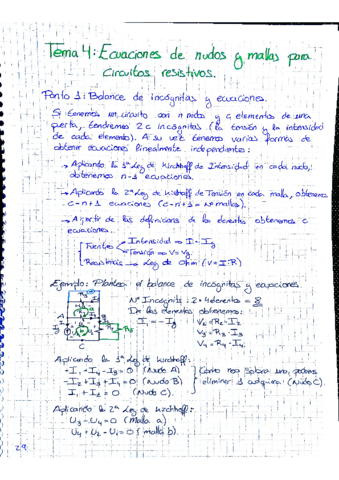 Tema 4: Ecuaciones de nudos y mallas para
circuitos resistivos.
Punto 1: Balance de incógnitas y ecuaciones.
Si tenemos un circuito con n nudos y c elementos de una
puerta, tendremos 2c incógnitas (la tensión y la intensidad
de cada elemento). A su vez tenemos varias formas de
obtener ecuaciones linealmente independientes:
→ Aplicando la 1ª Ley de Kirchhoff de Intensidad en cada nudo,
obtenemos n-1 ecuaciones.
→ Aplicando la 2ª Ley de Kirchhoff de Tensión en cada malla, obtenemos
c-n+1 ecuaciones (c-n+1 = Nº mallas).
→ A partir de las definiciones de los elementos obtenemos c
ecuaciones.
Fuentes
Intensidad → I = Ig
Tensión → V = Vg
Resistencias → Ley de Ohm (V = I·R)
Ejemplo: Plantear el balance de incógnitas y ecuaciones.
Nº Incógnitas: 2·4 elementos = 8
De los elementos obtenemos:
I₁ = -Ig
V₂ = R₂·I₂
V₃ = R₃·I₃
V₄ = R₄·I₄
A
B
C
Aplicando la 1ª Ley de Kirchhoff:
-I₁-I₄-I₃ = 0 (Nudo A)
-I₂+I₃+I₄ = 0 (Nudo B)
I₁+I₂ = 0 (Nudo C)
Como nos sobra una, podemos
eliminar 1 cualquiera (Nudo C).
Aplicando la 2ª Ley de Kirchhoff:
U₃-U₄ = 0 (malla a)
U₄+U₂-U₁ = 0 (malla b).